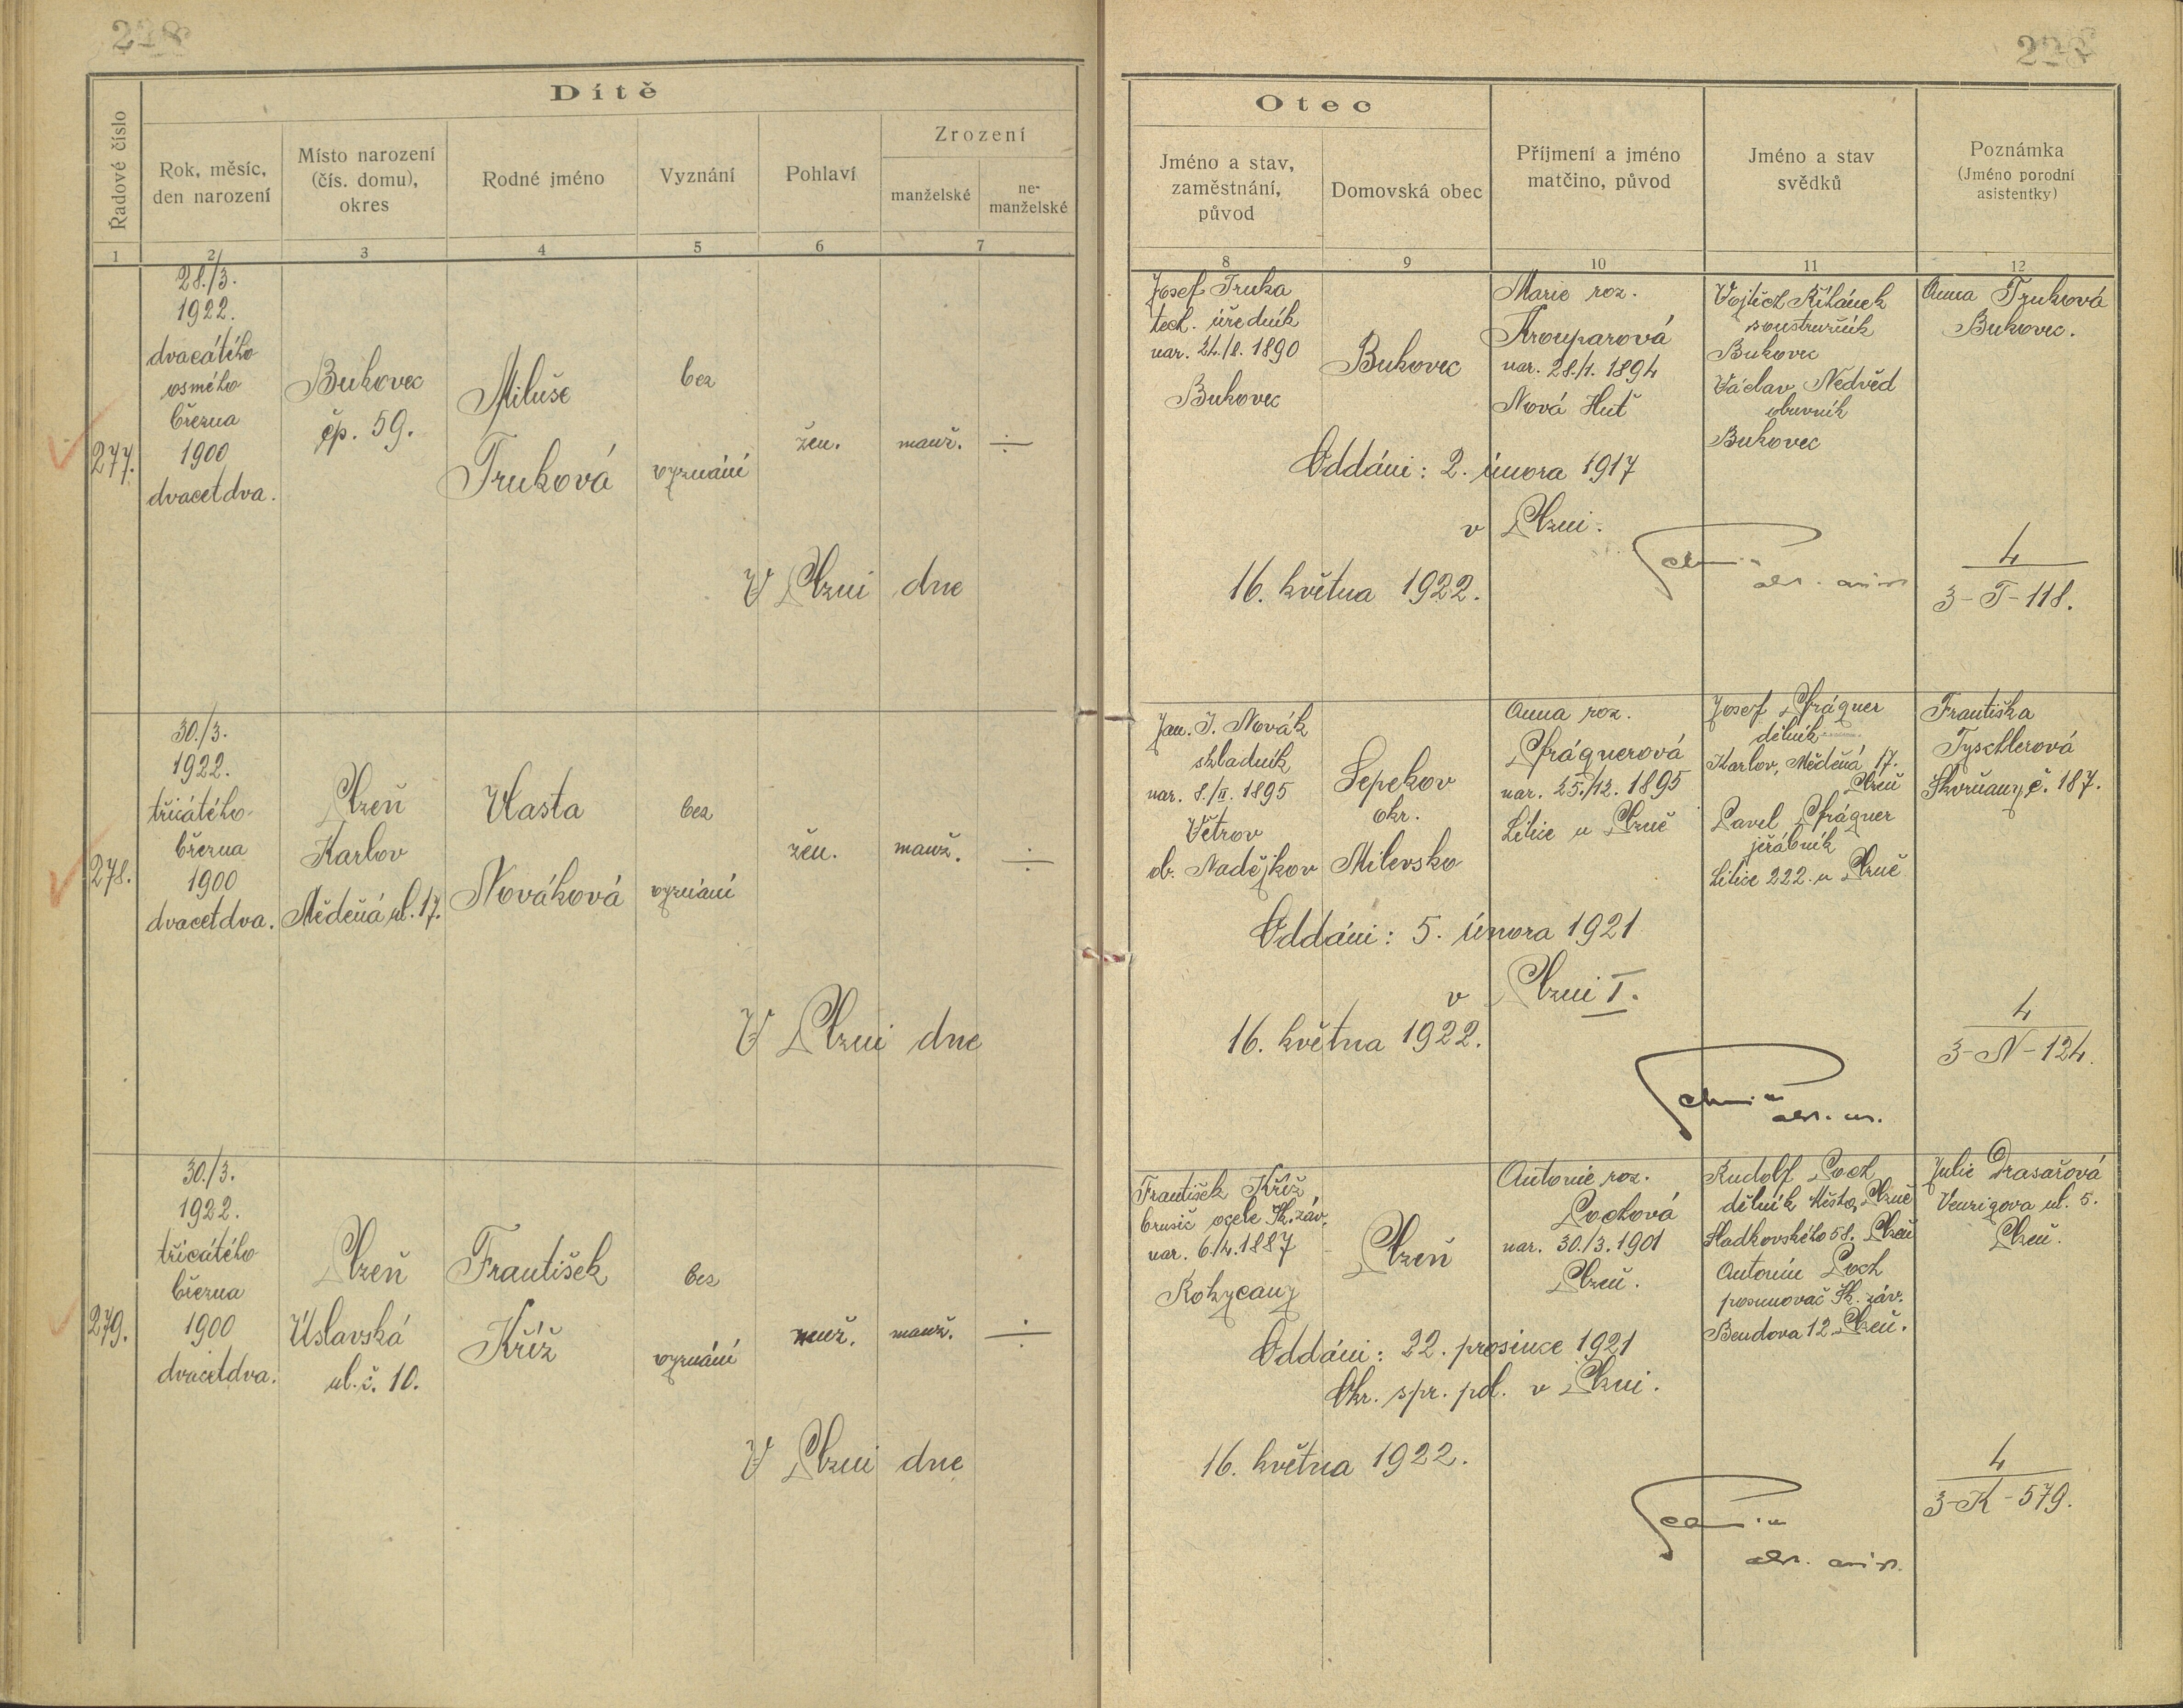 Dítě
Řadové číslo
Rok, měsíc,
den narození
Místo narození
(čís. domu),
okres
Rodné jméno
Vyznání
Pohlaví
Zrození
manželské
ne-
manželské
1 2 3 4 5 6 7
277.
28./3.
1922.
dvacátého
osmého
března
1900
dvacetdva.
Bukovec
čp. 59.
Miluše
Truková
bez
vyznání
žen.
manž.
V Plzni dne
278.
30./3.
1922.
třicátého
března
1900
dvacetdva.
Plzeň
Karlov
Měděná ul. 17.
Vlasta
Nováková
bez
vyznání
žen.
manž.
V Plzni dne
279.
30./3.
1922.
třicátého
března
1900
dvacetdva.
Plzeň
Úslavská
ul. č. 10.
František
Kříž
bez
vyznání
muž.
manž.
V Plzni dne
Otec
Jméno a stav,
zaměstnání,
původ
Domovská obec
Příjmení a jméno
matčino, původ
Jméno a stav
svědků
Poznámka
(Jméno porodní
asistentky)
8 9 10 11 12
Josef Truka
tech. úředník
nar. 24./8. 1890
Bukovec
Bukovec
Marie roz.
Krouparová
nar. 28./1. 1894
Nová Huť
Vojtěch
soustružník
Bukovec
Václav Nedvěd
obuvník
Bukovec
Anna Truková
Bukovec.
Oddáni: 2. února 1917
v Plzni.
16. května 1922.
4
3-T-118.
Jan. J. Novák
skladník
nar. 8./II. 1895
Větrov
ob. Nadějkov
Sepekov
okr.
Milevsko
Anna roz.
Sprágnerová
nar. 25./12. 1895
Litice u Plzně
Josef Sprágner
dělník
Karlov, Měděná 17.
Plzeň
Pavel Sprágner
jeřábník
Litice 222. u Plzně
Františka
Tyschlerová
Skvrňany č. 187.
Oddáni: 5. února 1921
v Plzni I.
16. května 1922.
4
3-N-124.
František Kříž
brusič ocele Šk. záv.
nar. 6./4. 1887
Rokycany
Plzeň
Antonie roz.
Pochová
nar. 30./3. 1901
Plzeň.
Rudolf Poch
dělník Města Plzně
Sladkovského 58. Plzeň
Antonín Poch
posunovač Šk. záv.
Bendova 12. Plzeň.
Julie Drasařová
Venzigova ul. 5.
Plzeň.
Oddáni: 22. prosince 1921
Okr. spr. pol. v Plzni.
16. května 1922.
4
3-K-579.